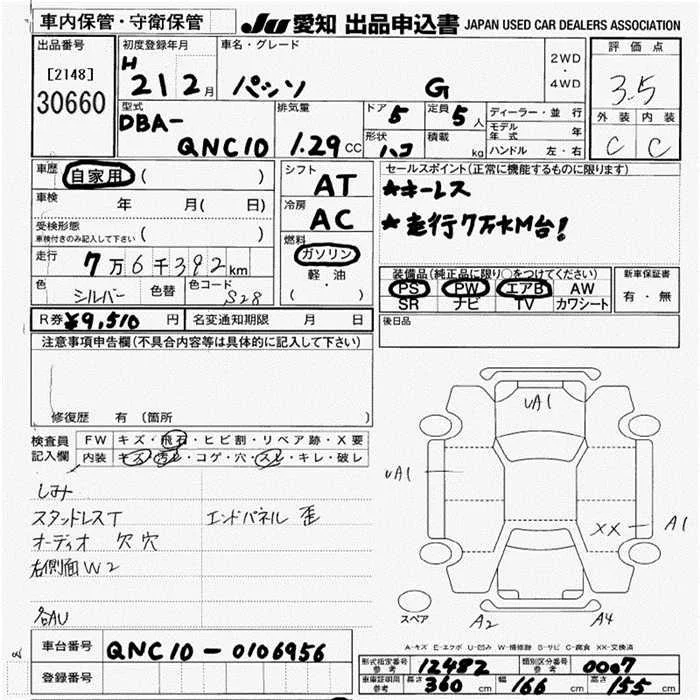 車内保管・守衛保管 JU 愛知 出品申込書 JAPAN USED CAR DEALERS ASSOCIATION
出品番号 初度登録年月 車名・グレード 2WD・4WD 評価点
[2148] H 21 2月 パッソ G 3.5
30660
型式 排気量 ドア 5 定員 5人 ディーラー・並行 外装 内装
DBA- モデル年式 年 C C
QNC10 1.29CC 形状 ハコ 積載 kg ハンドル 左・右
車歴 自家用 ( ) シフト AT セールスポイント(正常に機能するものに限ります)
車検 年 月( 日) 冷房 AC ★キーレス
受検形態 ( ) ★走行7万KM台!
車検付きのみ記入して下さい
燃料 ガソリン
軽・油
( ・ )
走行 7万6千392km
色 シルバー 色替 色コード S28
装備品(純正品に限り○をつけてください) 新車保証書
PS PW エアB AW 有・無
SR ナビ TV カワシート
R券 ¥9,510 円 名変通知期限 月 日 後日品
注意事項申告欄(不具合内容等は具体的に記入して下さい)
修復歴 有 (箇所
検査員 FW キズ・飛石・ヒビ割・リペア跡・X要
記入欄 内装 キズ・汚レ・コゲ・穴・スレ・キレ・破レ
UA1
UA1
XX A1
しみ
スタッドレスT エンドパネル 歪
オーディオ 欠 穴
右側面W2
各AU
スペア A2 A4
A-キズ E-エクボ U-凹み W-補修跡 B-サビ C-腐食 XX-交換済
車台番号 QNC10-0106956
登録番号
形式指定番号 参考 12482 類別区分番号 参考 0007
車庫証明用 参考 長さ 360 cm 幅 166 cm 高さ 155 cm